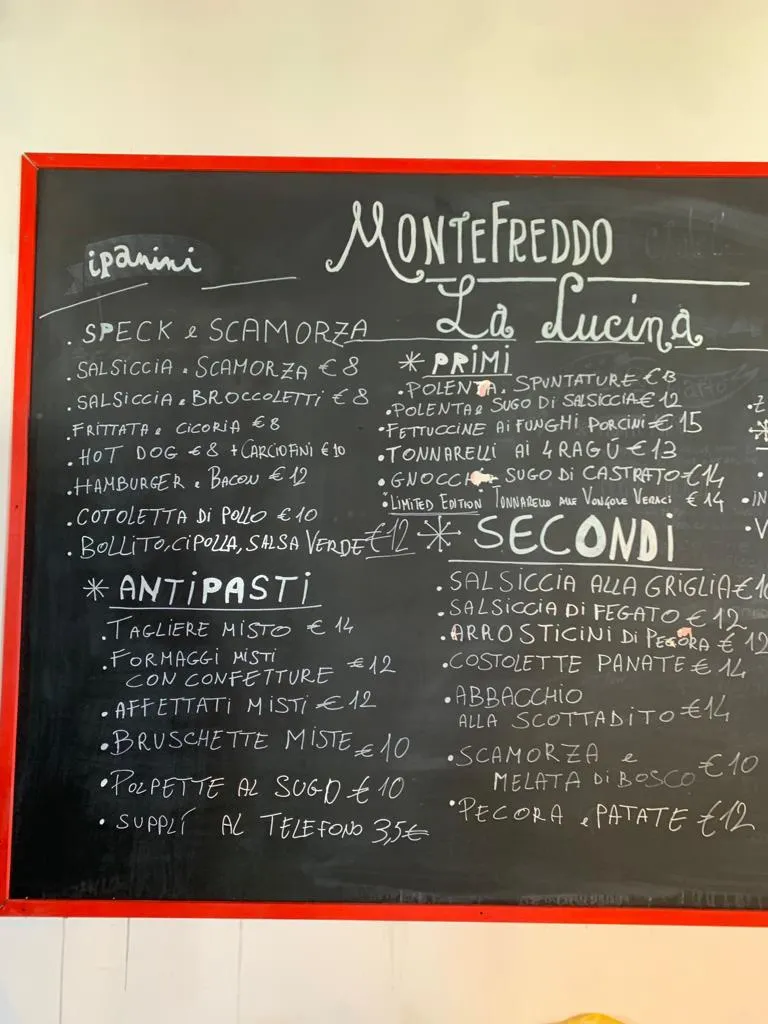 MONTEFREDDO
La Lucina
i panini
. SPECK e SCAMORZA
. SALSICCIA e SCAMORZA € 8
. SALSICCIA e BROCCOLETTI € 8
. FRITTATA e CICORIA € 8
. HOT DOG € 8 + CARCIOFINI € 10
. HAMBURGER e BACON € 12
. COTOLETTA Di POLLO € 10
. BOLLITO, CIPOLLA, SALSA VERDE €12
* ANTiPASTi
. TAGLIERE MISTO € 14
. FORMAGGI MISTI
CON CONFETTURE €12
. AFFETTATI MISTI € 12
. BRUSCHETTE MISTE € 10
. POLPETTE AL SUGO € 10
. SUPPLÍ AL TELEFONO 3,5€
* PRIMI
. POLENTA SPUNTATURE €
. POLENTA e SUGO DI SALSICCIA € 12
. FETTUCCINE Ai FUNGHI PORCINI € 15
. TONNARELLI Ai 4 RAGÚ € 13
. GNOCCHI SUGO DI CASTRATO €14
. "LIMITED EDITION" TONNARELLO ALLE VONGOLE VERACI € 14
* SECONDi
. SALSICCIA ALLA GRIGLIA €
. SALSICCIA DI FEGATO € 12
. ARROSTICINI Di PECORA € 12
. COSTOLETTE PANATE € 14
. ABBACCHIO
ALLA SCOTTADITO €14
. SCAMORZA e
MELATA Di BOSCO €10
. PECORA e PATATE €12